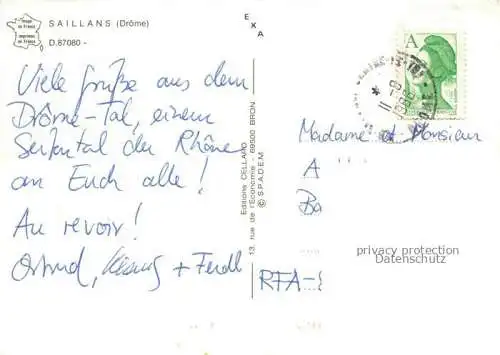 Image
en France
imprimée
en France
SAILLANS (Drôme)
D.87080 -
EXA
Viele Grüße aus dem
Drôme-Tal, einem
Seitental der Rhône
an Euch alle!
Au revoir!
+ Ferdl
Editions CELLARD
13, rue de l'Économie - 69500 BRON
© S.P.A.D.E.M.
A
Madame et Monsieur
A
Ba
privacy protection
Datenschutz
RFA-